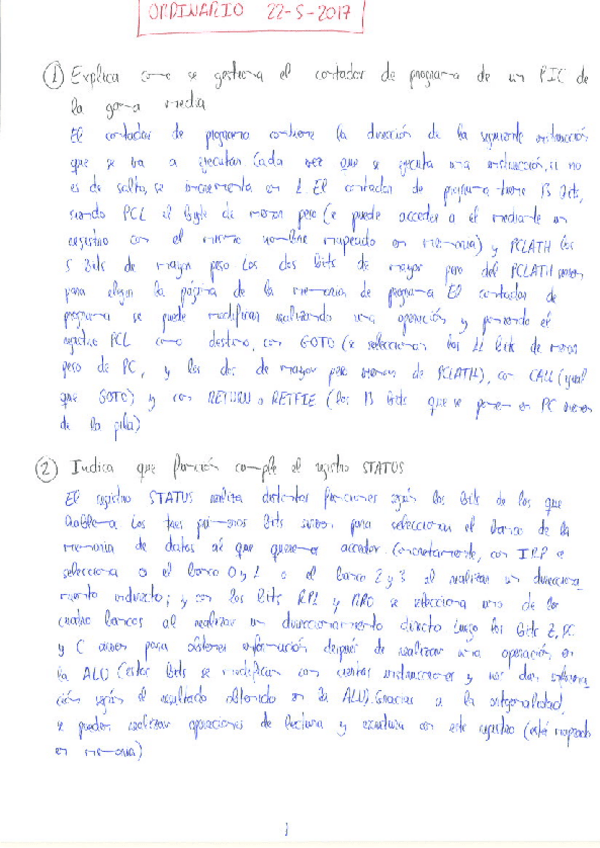 ORDINARIO 22-5-2017
① Explica como se gestiona el contador de programa de un PIC de
la gama media
El contador de programa contiene la dirección de la siguiente instrucción
que se va a ejecutar. Cada vez que se ejecuta una instrucción, si no
es de salto, se incrementa en 1. El contador de programa tiene 13 bits,
siendo PCL el byte de menor peso (se puede acceder a él mediante un
registro con el mismo nombre mapeado en memoria) y PCLATH los
5 bits de mayor peso. Los dos bits de mayor peso del PCLATH sirven
para elegir la página de la memoria de programa. El contador de
programa se puede modificar realizando una operación y poniendo el
registro PCL como destino, con GOTO (se seleccionan los 11 bits de menor
peso de PC, y los dos de mayor peso vienen de PCLATH), con CALL (igual
que GOTO) y con RETURN o RETFIE (los 13 bits que se ponen en PC vienen
de la pila)
② Indica que función cumple el registro STATUS
El registro STATUS realiza distintas funciones según los bits de los que
hablemos. Los tres primeros bits sirven para seleccionar el banco de la
memoria de datos al que queremos acceder. Concretamente, con IRP se
selecciona o el banco 0 y 1 o el banco 2 y 3 al realizar un direcciona
miento indirecto; y con los bits RP1 y RP0 se selecciona uno de los
cuatro bancos al realizar un direccionamiento directo. Luego los bits Z, DC
y C sirven para obtener información después de realizar una operación en
la ALU (estos bits se modifican con ciertas instrucciones y nos dan informa
ción según el resultado obtenido en la ALU). Gracias a la ortogonalidad,
se pueden realizar operaciones de lectura y escritura con este registro (está mapeado
en memoria)
1